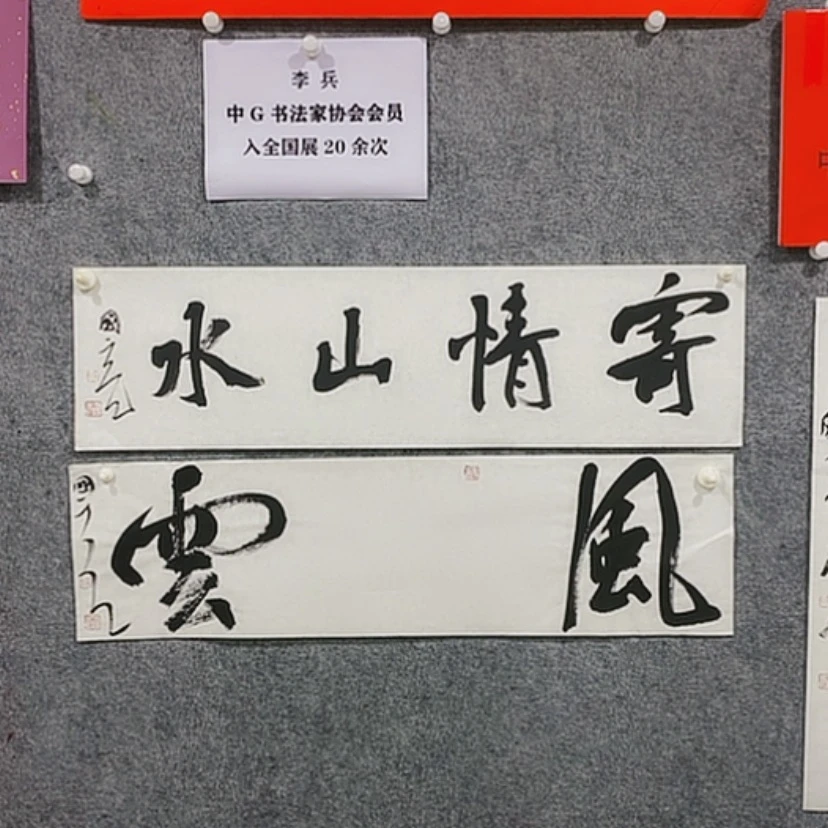 李兵
中G书法家协会会员
入全国展20余次
寄情山水
風雲